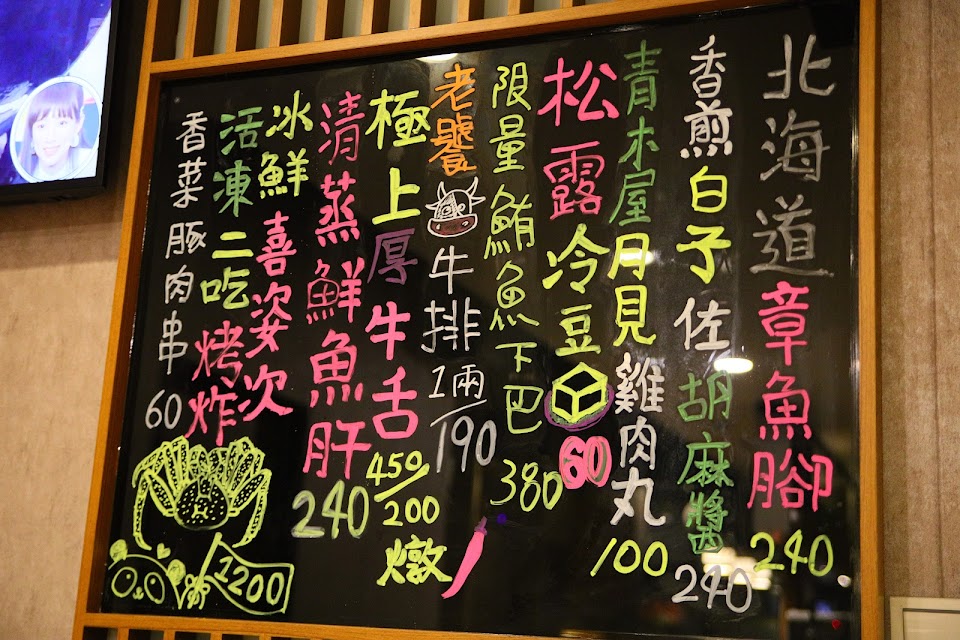 北海道章魚腳240
香煎白子佐胡麻醬240
青木屋月見雞肉丸100
松露冷豆60
限量鮪魚下巴380
老饕牛排1兩/190
極上厚牛舌450/200燉
清蒸鮮魚肝240
冰鮮喜姿次
活凍二吃烤炸
1200
香菜豚肉串60